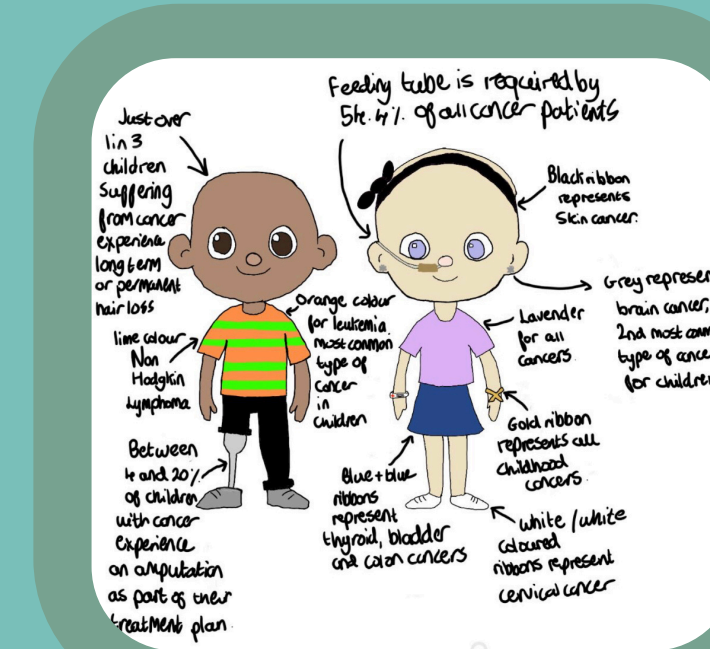 Feeding tube is required by
54.4% of all cancer patients
Just over
1 in 3
children
Suffering
from cancer
experience
long term
or permanent
hair loss
Black ribbon
represents
Skin cancer.
Grey represen
brain cancer,
2nd most comm
type of cance
for children
Orange colour
for leukemia
most common
type of
cancer
in
children
Lavender
for all
cancers.
lime colour
Non
Hodgkin
Lymphoma
Gold ribbon
represents all
childhood
cancers.
Between
4 and 20%
of children
with cancer
experience
an amputation
as part of their
treatment plan.
Blue + blue
ribbons
represent
thyroid, bladder
and colon cancers
white / white
coloured
ribbons represent
cervical cancer